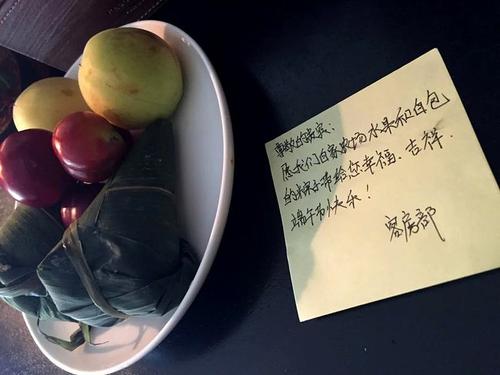 尊敬的贵宾：
愿我们自家农场水果和自包
的粽子带给您幸福、吉祥.
端午节快乐！
客房部